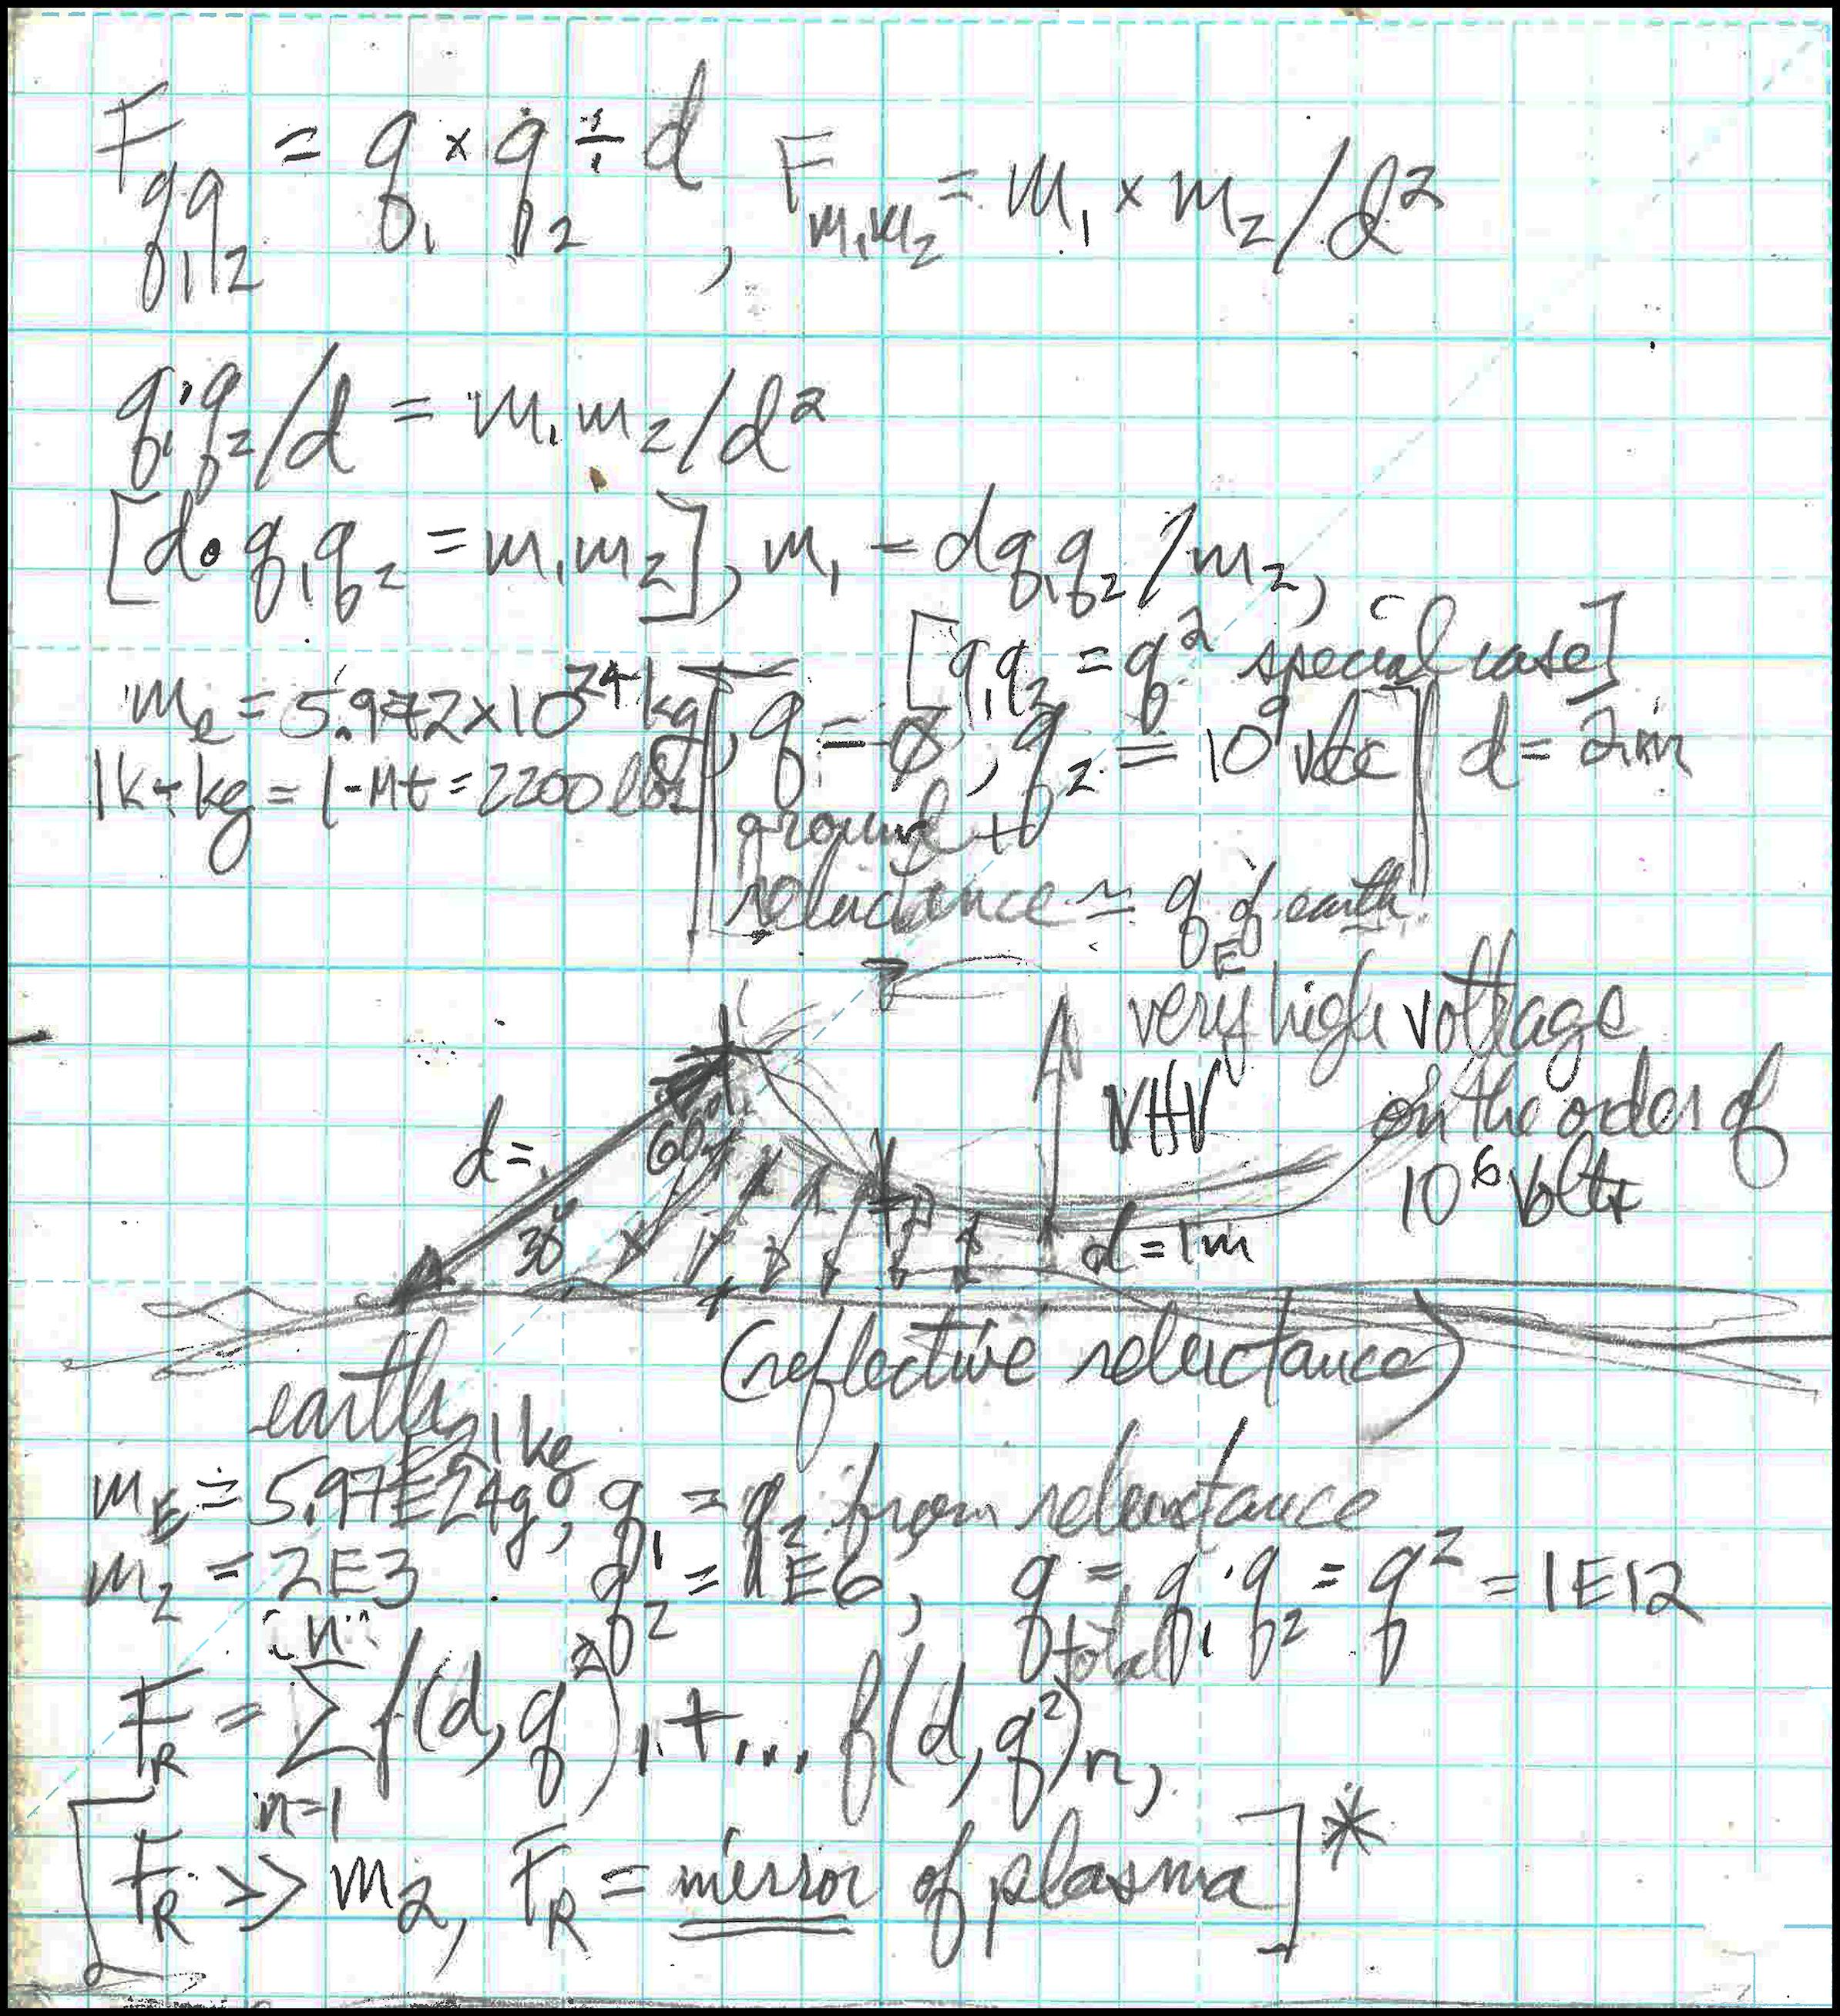 F q₁q₂ = q₁ × q₂ ÷ d , F m₁m₂ = m₁ × m₂/d²
q₁·q₂/d = m₁m₂/d²
[d• q₁q₂ = m₁m₂], m₁ = dq₁q₂/m₂,
[q₁q₂ = q² special case]
mₑ = 5.972×10²⁴ kg, q₁ = ø, q₂ = 10⁹ Vdc d = 2m
1k+kg = 1-Mt = 2200 lbs ground +
reluctance ≃ q_E of earth
very high voltage
VHV on the order of
10⁶ Volts
d =
60°
30°
d = 1m
earth
(reflective reluctance)
E21kg
m_E = 5.97E24g, q₁ = q₂ from reluctance
m₂ = 2E3 q₂ = 1E6, q total = q₁·q₂ = q² = 1E12
F_R = n Σ n=1 f(d,q²)₁ + ... f(d,q²)n,
[F_R >> m₂, F_R = mirror of plasma]*